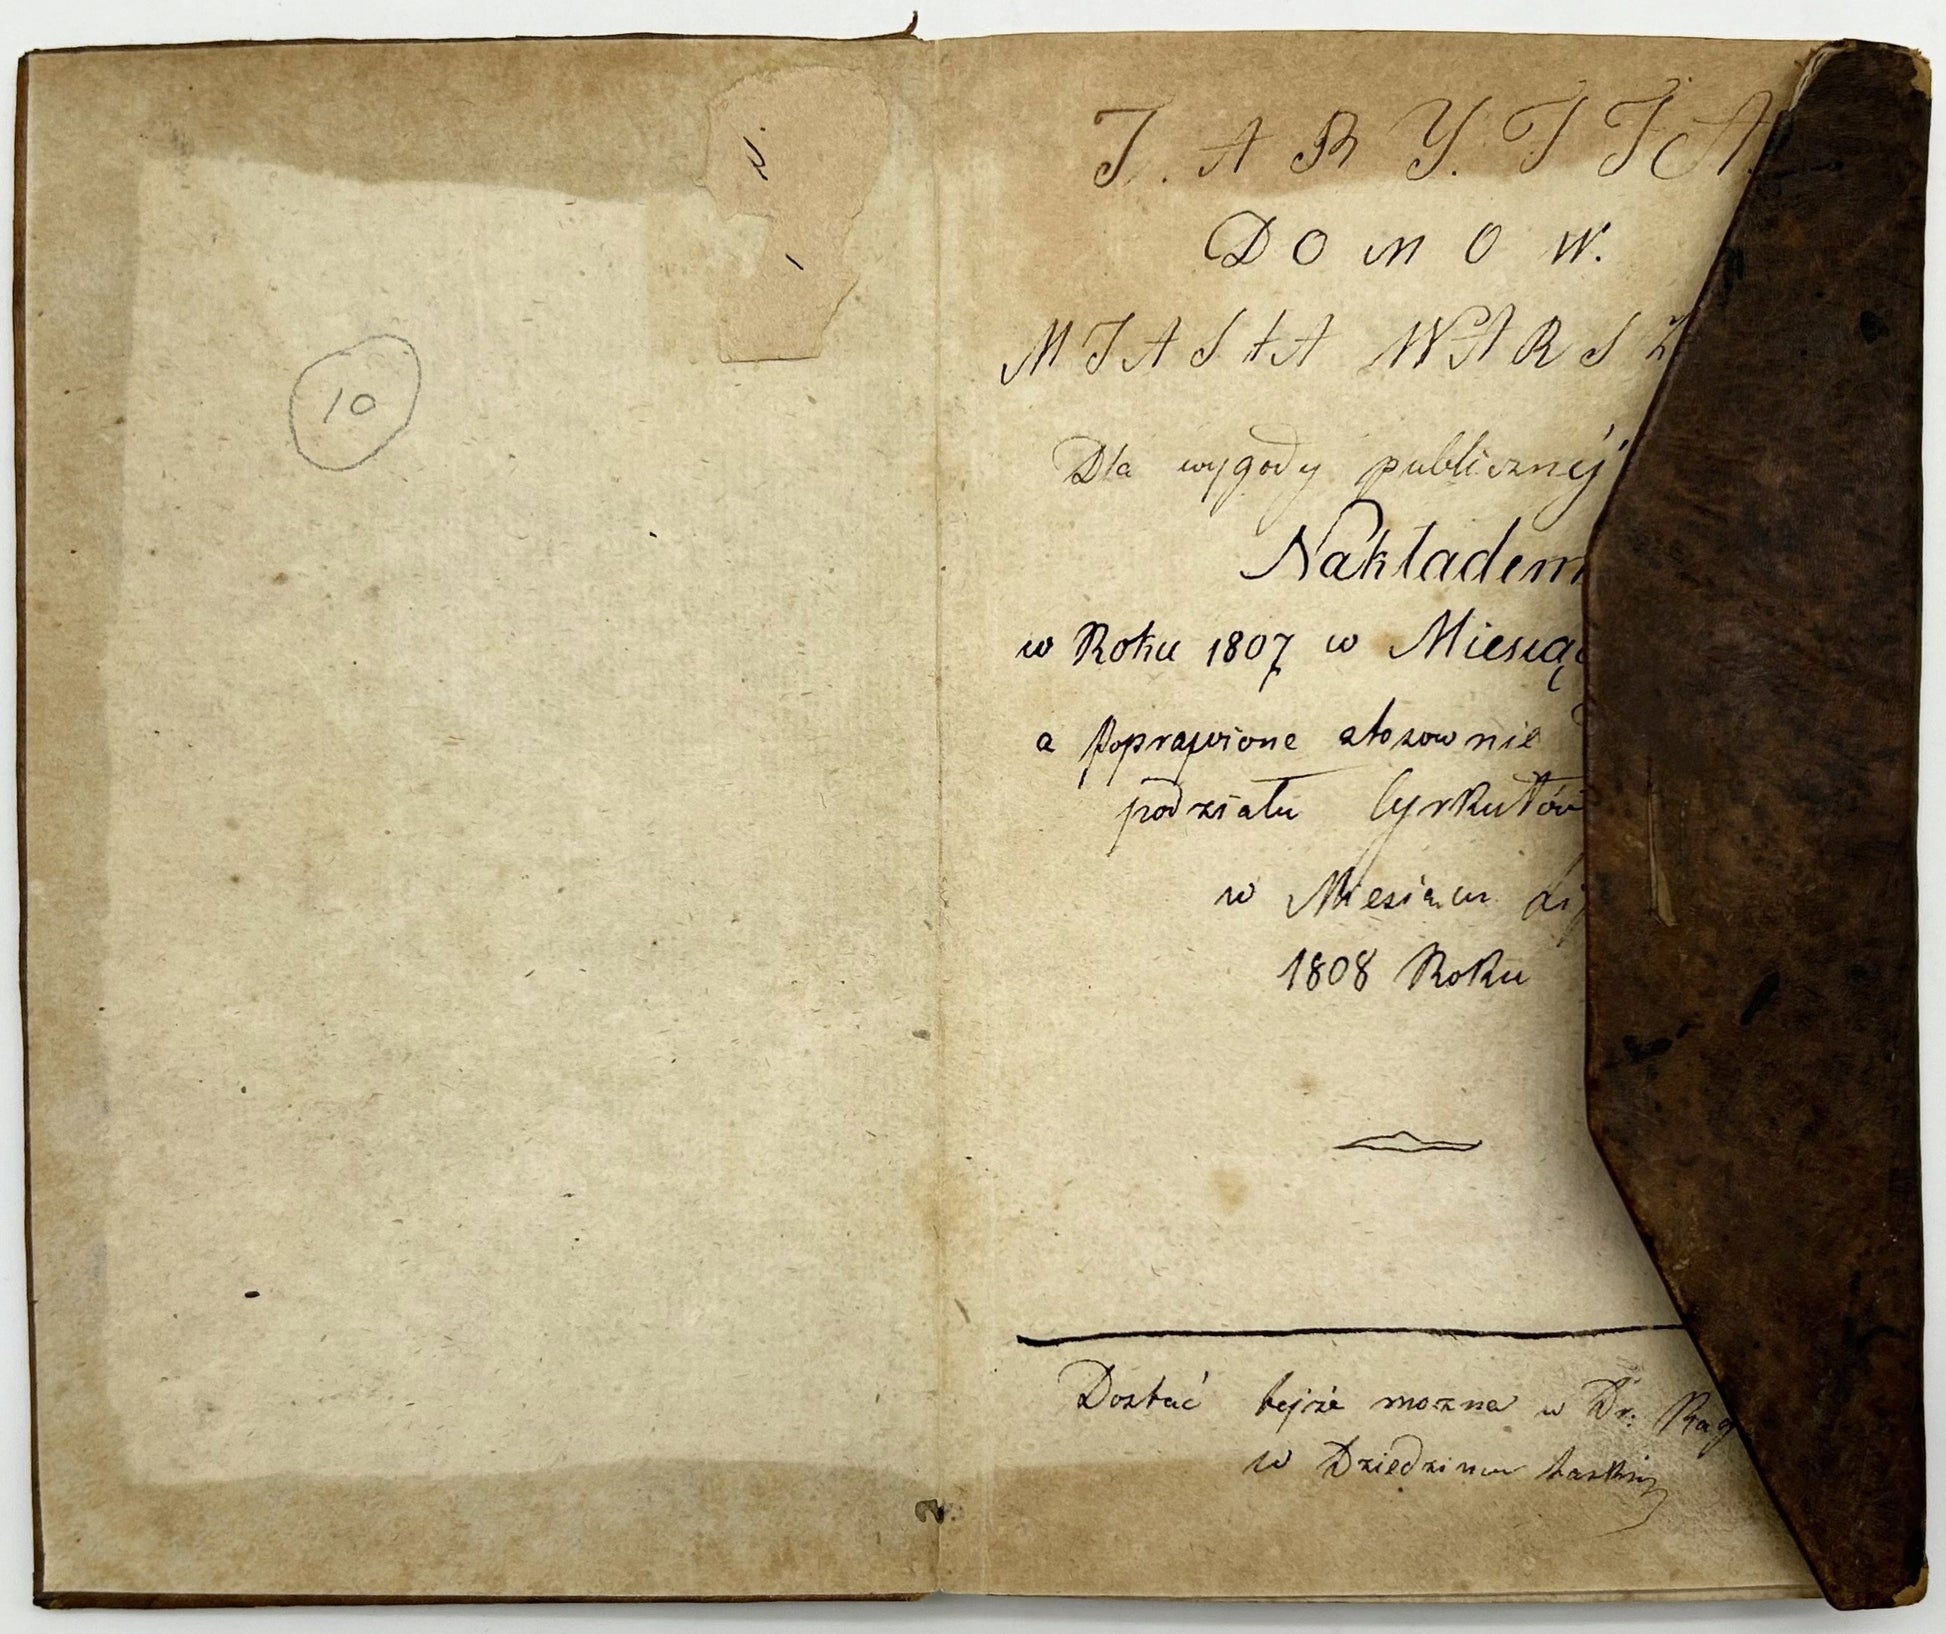 10
T. A R Y. F F A.
D O M O W.
M I A S T A W A R S Z
Dla wygody publicznéj
Nakładem
w Roku 1807 w Miesiąc
a poprawione stosownie
podziału Cyrkułów
w Miesiącu Lip
1808 Roku
Dostać tejże można w Dr: Rag
w Dziedzincu